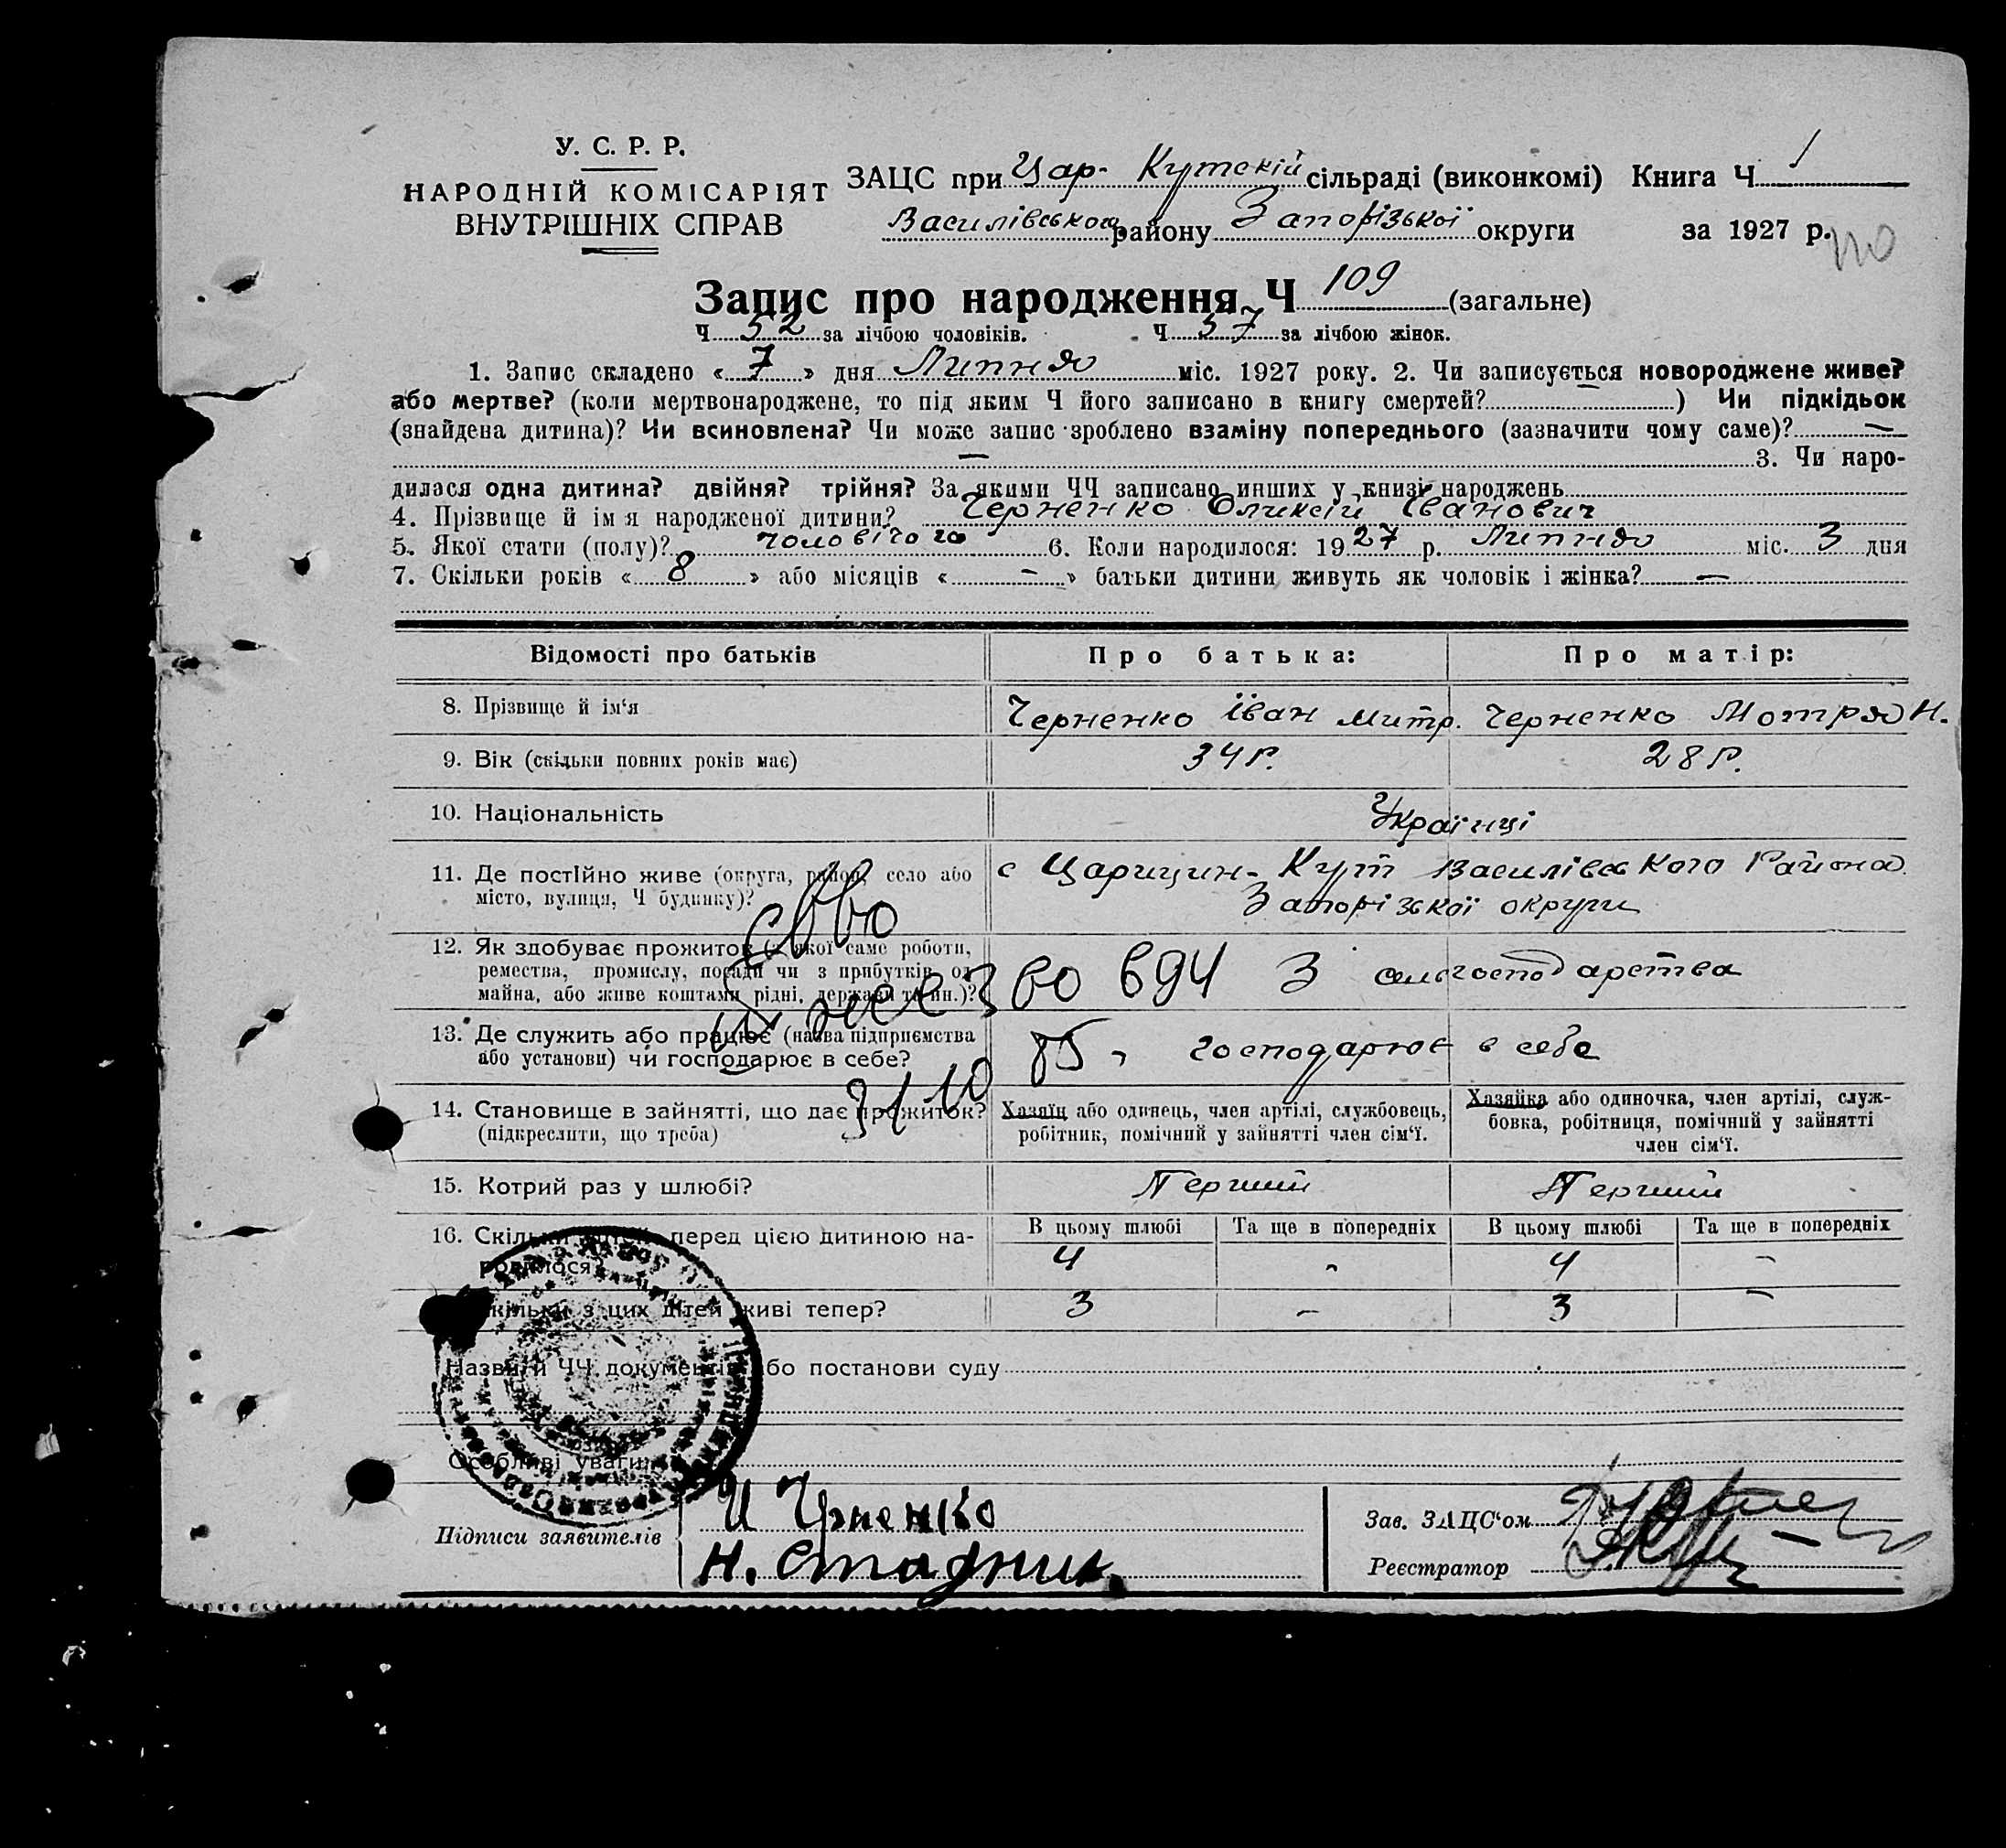 У. С. Р. Р.
НАРОДНІЙ КОМІСАРІЯТ
ВНУТРІШНІХ СПРАВ
ЗАЦС при Цар-Кутській сільраді (виконкомі) Книга Ч 1
Василівського району Запорізької округи за 1927 р.
110
Запис про народження Ч 109 (загальне)
Ч 52 за лічбою чоловіків. Ч 57 за лічбою жінок.
1. Запис складено « 7 » дня Липня міс. 1927 року. 2. Чи записується новороджене живе?
або мертве? (коли мертвонароджене, то під яким Ч його записано в книгу смертей? — ) Чи підкідьок
(знайдена дитина)? Чи всиновлена? Чи може запис зроблено взаміну попереднього (зазначити чому саме)? —
— 3. Чи наро-
дилася одна дитина? двійня? трійня? За якими ЧЧ записано инших у книзі народжень
4. Прізвище й ім я народженої дитини? Черненко Оликсій Іванович
5. Якої стати (полу)? чоловічого 6. Коли народилося: 1927 р. Липня міс. 3 дня
7. Скільки років « 8 » або місяців « - » батьки дитини живуть як чоловік і жінка? —
Відомості про батьків Про батька: Про матір:
8. Прізвище й ім‘я Черненко Іван Митр. Черненко Мотря Н.
9. Вік (скільки повних років має) 34 р. 28 р.
10. Національність Українці
11. Де постійно живе (округа, район, село або с Царицин-Кут Василівського Района
місто, вулиця, Ч будинку)? Запорізької округи
12. Як здобуває прожиток (з якої саме роботи,
ремества, промислу, посади чи з прибутків од
майна, або живе коштами рідні, держави та ин.)? 694 З сільгосподарства
13. Де служить або працює (назва підприємства
або установи) чи господарює в себе? господарює в себе
31 10
14. Становище в зайнятті, що дає прожиток? Хазяїн або одинець, член артілі, службовець, Хазяйка або одиночка, член артілі, служ-
(підкреслити, що треба) робітник, помічний у зайнятті член сім‘ї. бовка, робітниця, помічний у зайнятті
член сім‘ї.
15. Котрий раз у шлюбі? Перший Перший
16. Скільки дітей перед цією дитиною на- В цьому шлюбі Та ще в попередніх В цьому шлюбі Та ще в попередніх
родилося? 4 - 4 -
Скільки з цих дітей живі тепер? 3 - 3 -
Назви й ЧЧ документів або постанови суду
Особливі уваги
Підписи заявителів И Чрненко
Н. Стадник.
Зав. ЗАЦС‘ом
Реєстратор